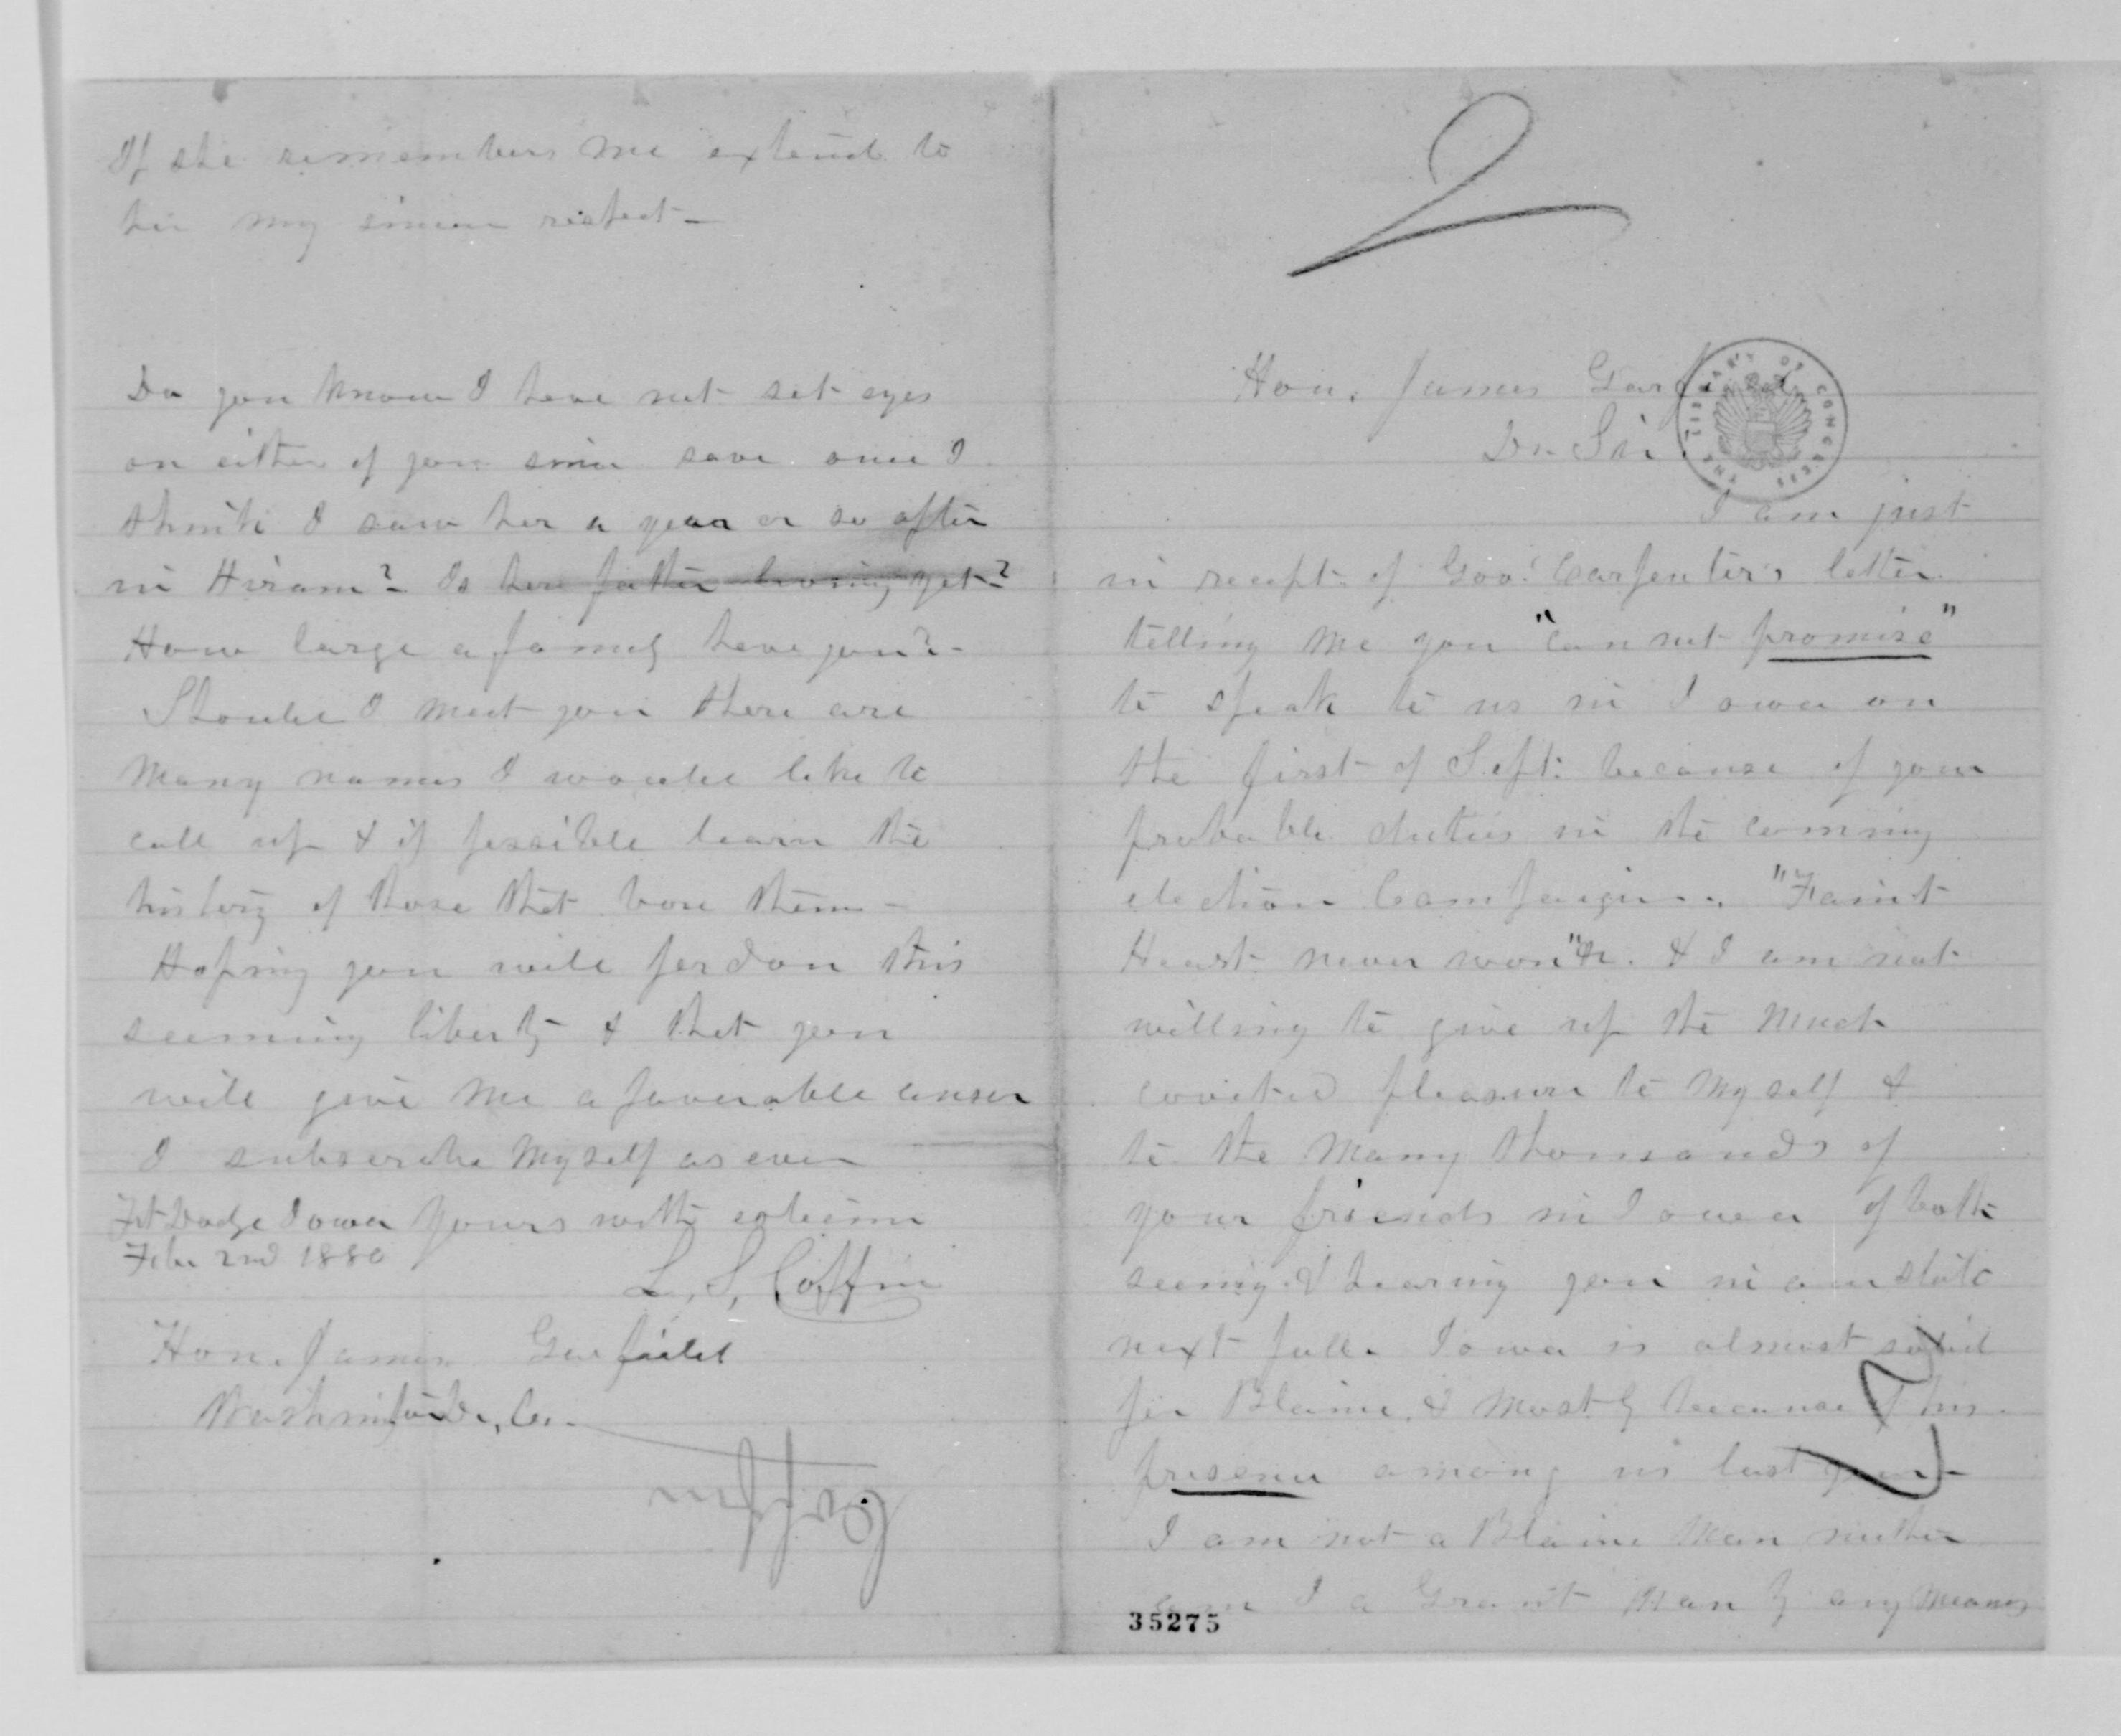 If she remembers me extend to
her my sincere respect-
Do you know I have not set eyes
on either of you since save once I
think I saw her a year or so after
in Hiram? - Is here father living yet?
How large a family have you? -
Should I meet you there are
Many names I would like to
call up & if possible learn the
history of those that bore them -
Hoping you will pardon this
seeming liberty & that you
will give me a favorable answer
I subscribe Myself as ever
Ft Dodge Iowa Yours with esteem
Feb 2nd 1880
L. S. Coffin
Hon. James Garfield
Washington D. C.
Coffin
2
Hon. James Garfield
Dr. Sir.
THE LIBRARY OF CONGRESS
I am just
in receipt of Gov. Carpenters letter
telling Me you "can not promise"
to speak to us in Iowa on
the first of Sept. because of your
probable duties in the coming
election Campaign. "Faint
Heart never won" &c. & I am not
willing to give up the Much
coveted pleasure to Myself &
to the Many thousands of
your friends in Iowa of both
seeing & hearing you in our state
next fall. Iowa is almost solid
for Blaine. & Mostly because of his
presence among us last year-
I am not a Blaine Man neither
am I a Grant Man by any Means
35275